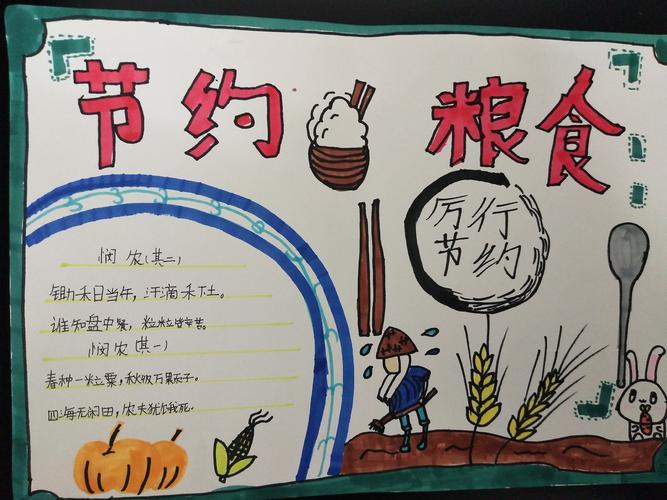 节约粮食
厉行
节约
悯农(其二)
锄禾日当午，汗滴禾下土。
谁知盘中餐，粒粒皆辛苦。
悯农(其一)
春种一粒粟，秋收万颗子。
四海无闲田，农夫犹饿死。